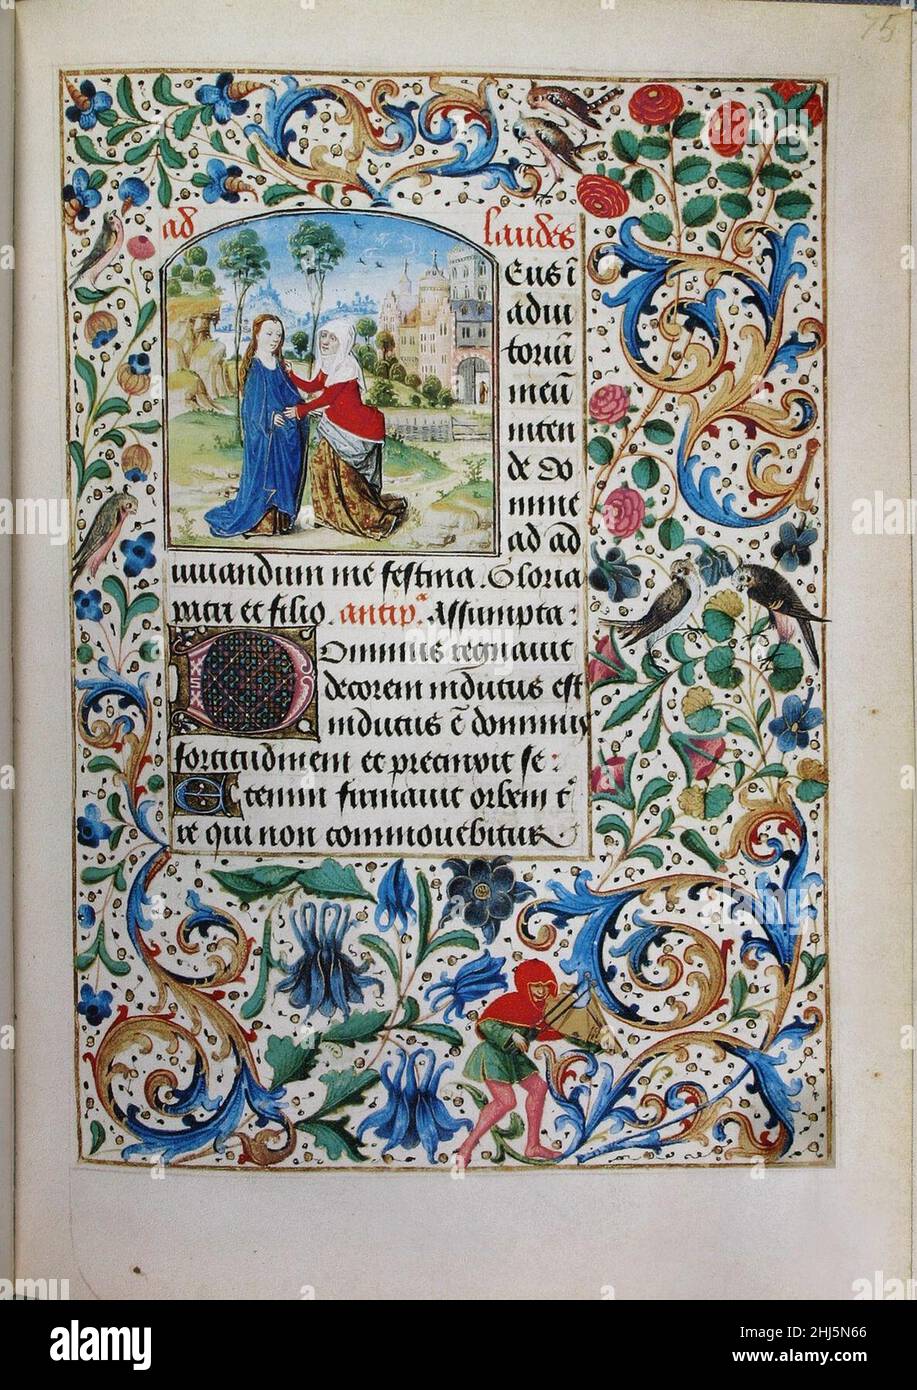 75
ad laudes
Eus ī
adiu
toriū
meū
inten
de Do
mine
ad ad
iuuandum me festina. Gloria
patri et filio. antipª. Assumpta.
Dominus regnauit
decorem indutus est
indutus ē dominus
fortitudinem et precinxit se:
Etenim firmauit orbem t̄
re qui non commouebitur
alamy
Image ID: 2HJ5N66
www.alamy.com